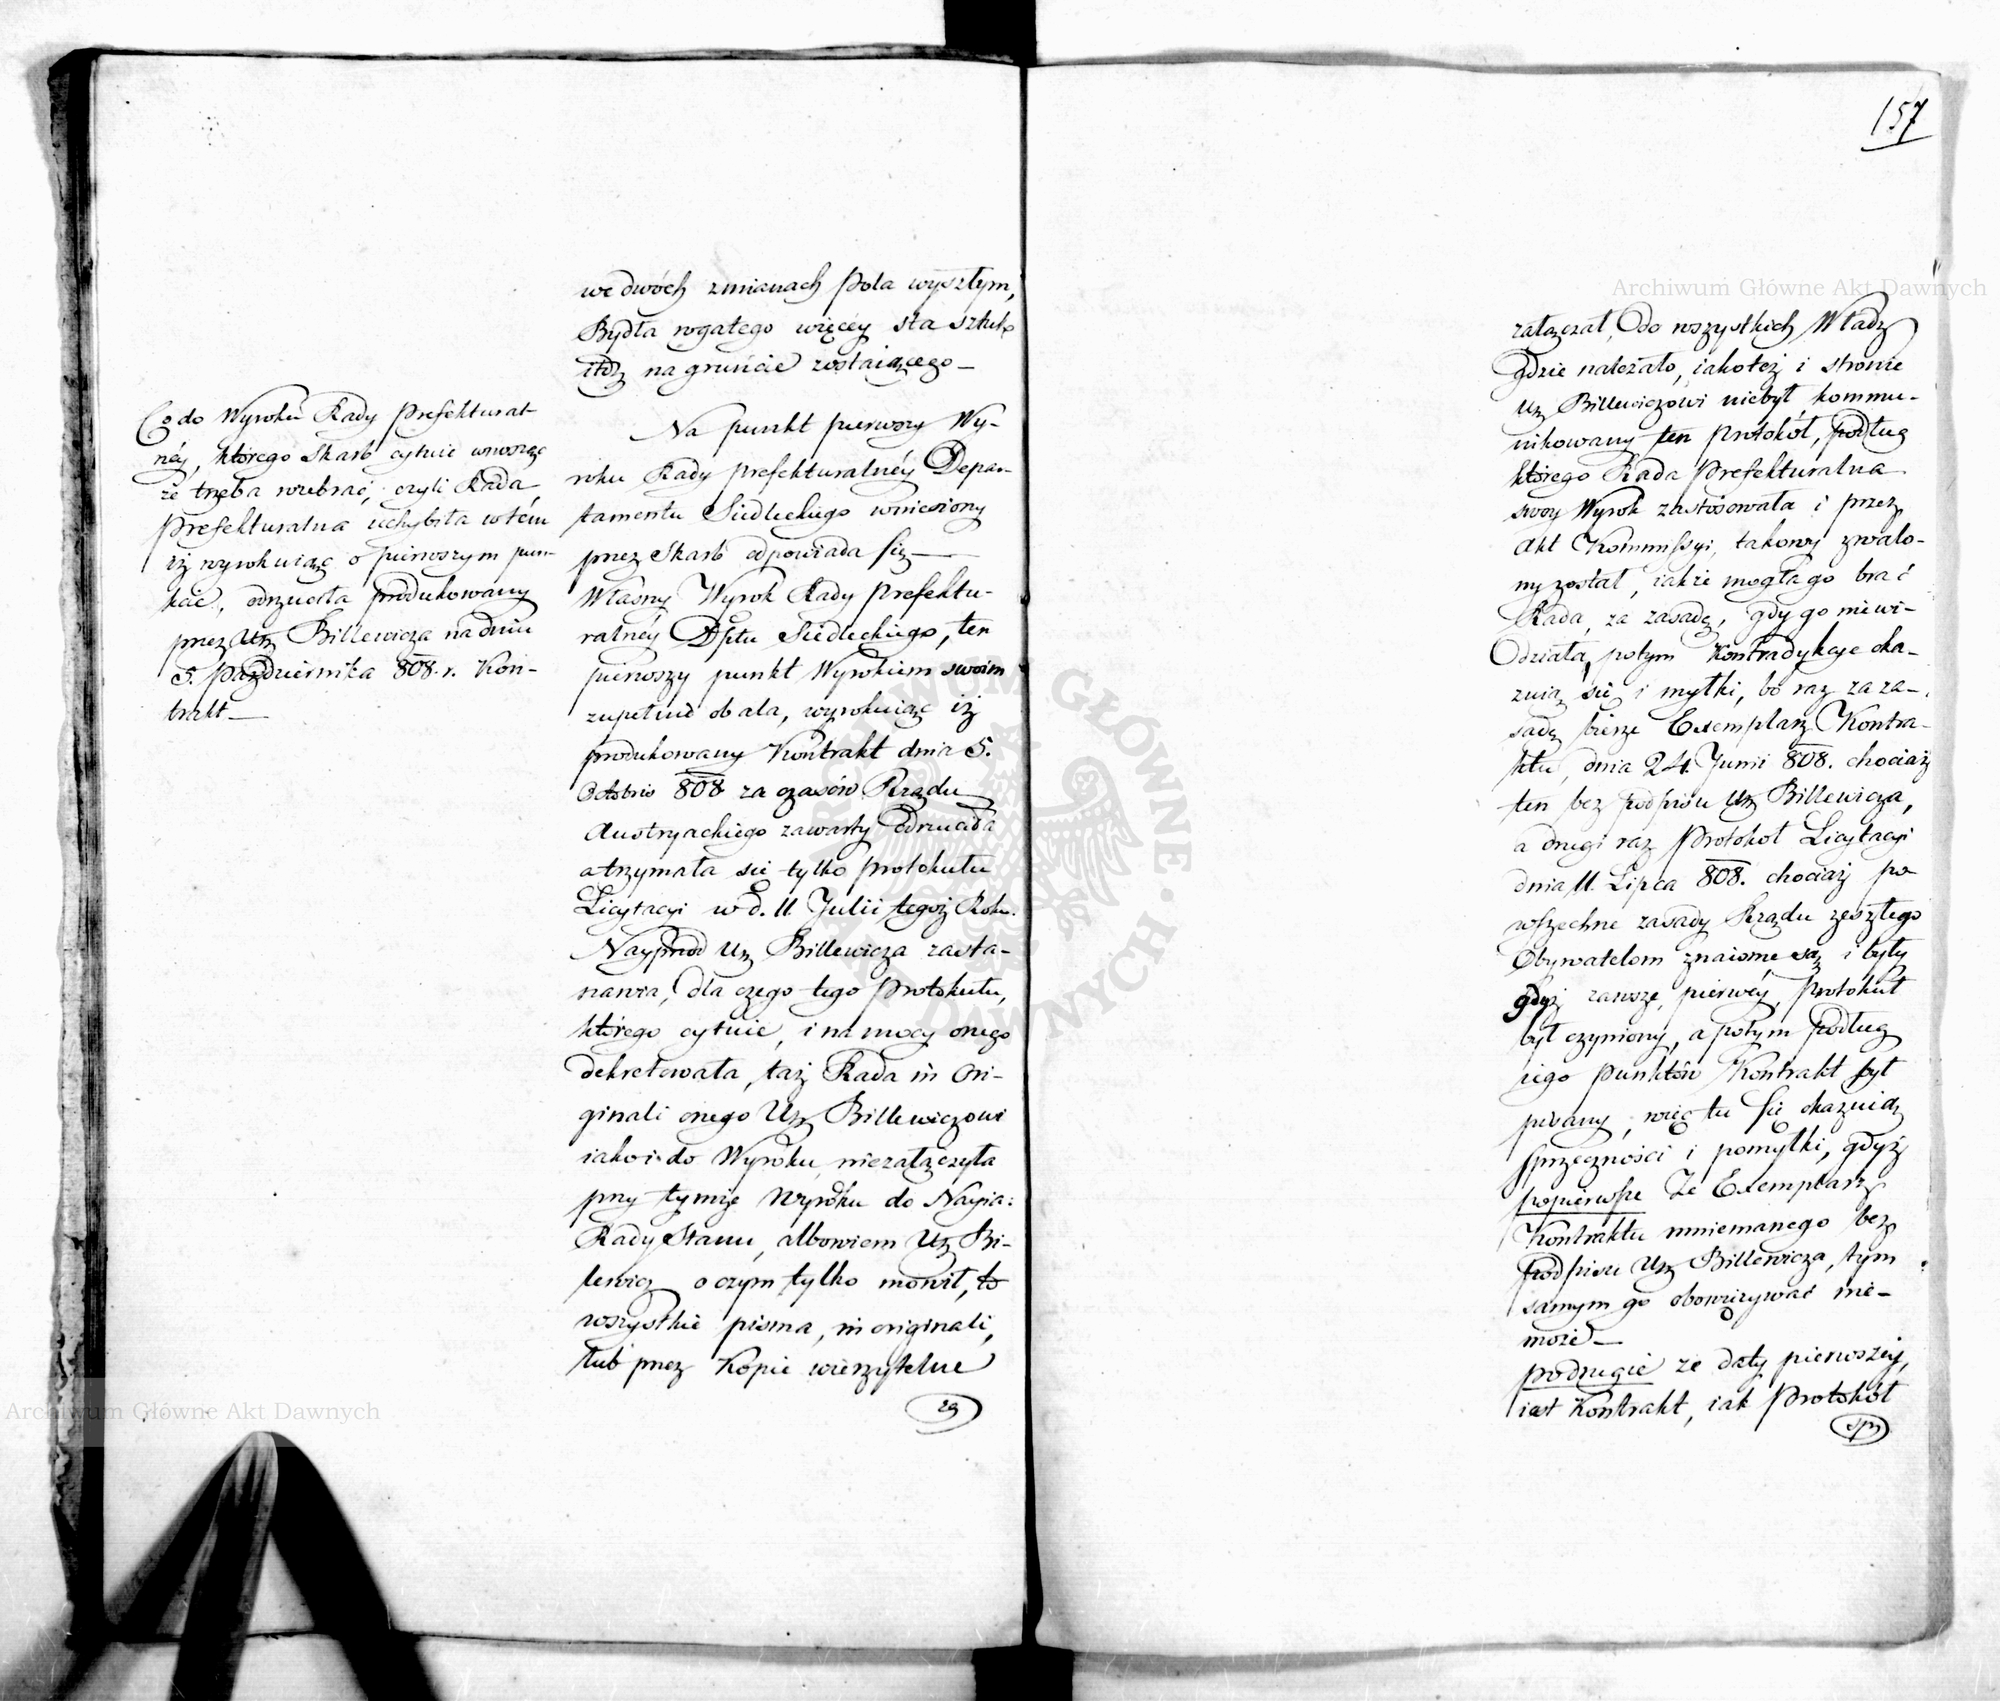 Co do Wyroku Rady Prefektural-
néy, którego Skarb cytuie wnosząc
że trzeba rozebrać, czyli Rada
Prefekturalna uchybiła w tém
iż wyrokuiąc o pierwszym pun-
kcie, odrzuciła produkowany
przez Ur. Billewicza na dniu
5. Października 808. r. Kon-
trakt —
we dwóch zmianach Pola wyszłym,
Bydła rogatego więcéy sta sztuk
itd. na gruńcie zostaiącego —
Na punkt pierwszy Wy-
roku Rady Prefekturalnéy Depar-
tamentu Siedleckiego wniesiony
przez Skarb odpowiada się —
Własny Wyrok Rady Prefektu-
ralnéy Dptu Siedleckiego, ten
pierwszy punkt Wyrokiem swoim
zupełnie obala, wyrokuiąc iż
produkowany Kontrakt dnia 5.
Octobris 808 za czasów Rządu
Austryackiego zawarty odrzuciła
a trzymała sie tylko Protokułu
Licytacyi w d. 11. Julii tegoż Roku.
Nayprzód Ur. Billewicza zasta-
nawia, dla czego tego Protokułu,
którego cytuie, i na mocy onego
dekretowała, taż Rada in Ori-
ginali onego Ur. Billewiczowi
iako i do Wyroku niezałączyła
przy tymże Wyroku do Nayia:
Rady Stanu, albowiem Ur. Bi-
lewicz o czym tylko mówił, to
wszystkie pisma, in originali,
lub przez Kopie wierzytelne
za
157
załączał, do wszystkich Władz
gdzie należało, iakoteż i stronie
Ur. Billewiczowi niebył kommu-
nikowany ten Protokół, podług
którego Rada Prefekturalna
swoy Wyrok zastosowała i przez
Akt Kommissyi, takowy zwalo-
ny został, iakże mogła go brać
Rada, za zasadę, gdy go niewi-
działa, potym Kontradykcje oka-
zuią się i myłki, bo raz za za-
sadę bierze Exemplarz Kontra-
ktu, dnia 24. Junii 808. chociaż
ten bez podpisu Ur. Billewicza,
a drugi raz Protokół Licytacyi
dnia 11. Lipca 808. chociaż po-
wszechne zasady Rządu zeszłego
Obywatelom znaiome są i były
gdyż zawsze, pierwéy, Protokuł
był czyniony, a potym podług
iego punktów Kontrakt był
pisany, więc tu się okazuią
sprzeczności i pomyłki, gdyż
popierwsze Że Exemplarz
Kontraktu mniemanego bez
podpisu Ur. Billewicza, tym
samym go obowiązywać nie-
może —
podrugie że daty pierwszéy,
iest Kontrakt, iak Protokół